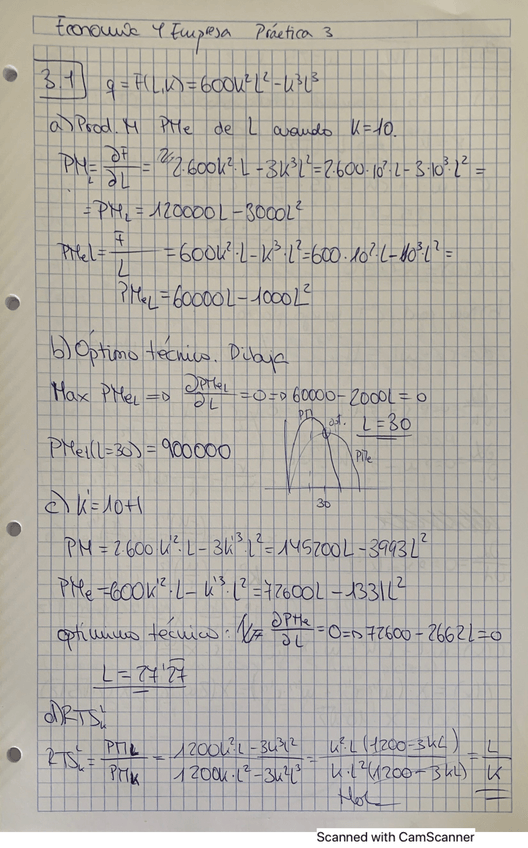 Economía y Empresa Práctica 3
3.1 q = F(L,K) = 600K²L² - K³L³
a) Prod. M PMe de L cuando K=10.
PM_L = ∂F/∂L = 2·600K²·L - 3K³L² = 2·600·10²·L - 3·10³·L² =
= PM_L = 120000L - 3000L²
PMeL = F/L = 600K²·L - K³·L² = 600·10²·L - 10³·L² =
PMe_L = 60000L - 1000L²
b) Óptimo técnico. Dibuja
Max PMe_L => ∂PMe_L/∂L = 0 => 60000 - 2000L = 0
PM o.t. L = 30
PMel(L=30) = 900000
PMe
30
c) K' = 10+1
PM = 2·600K'²·L - 3K'³·L² = 145200L - 3993L²
PMe = 600K'²·L - K'³·L² = 72600L - 1331L²
optimumo técnico: ∂PMe/∂L = 0 => 72600 - 2662L = 0
L = 27'27
d) RTS
RTS = PM_L/PM_K = 1200K²·L - 3K³L²/1200K·L² - 3K²L³ = K²·L(1200-3KL)/K·L²(1200-3KL) = L/K
Scanned with CamScanner